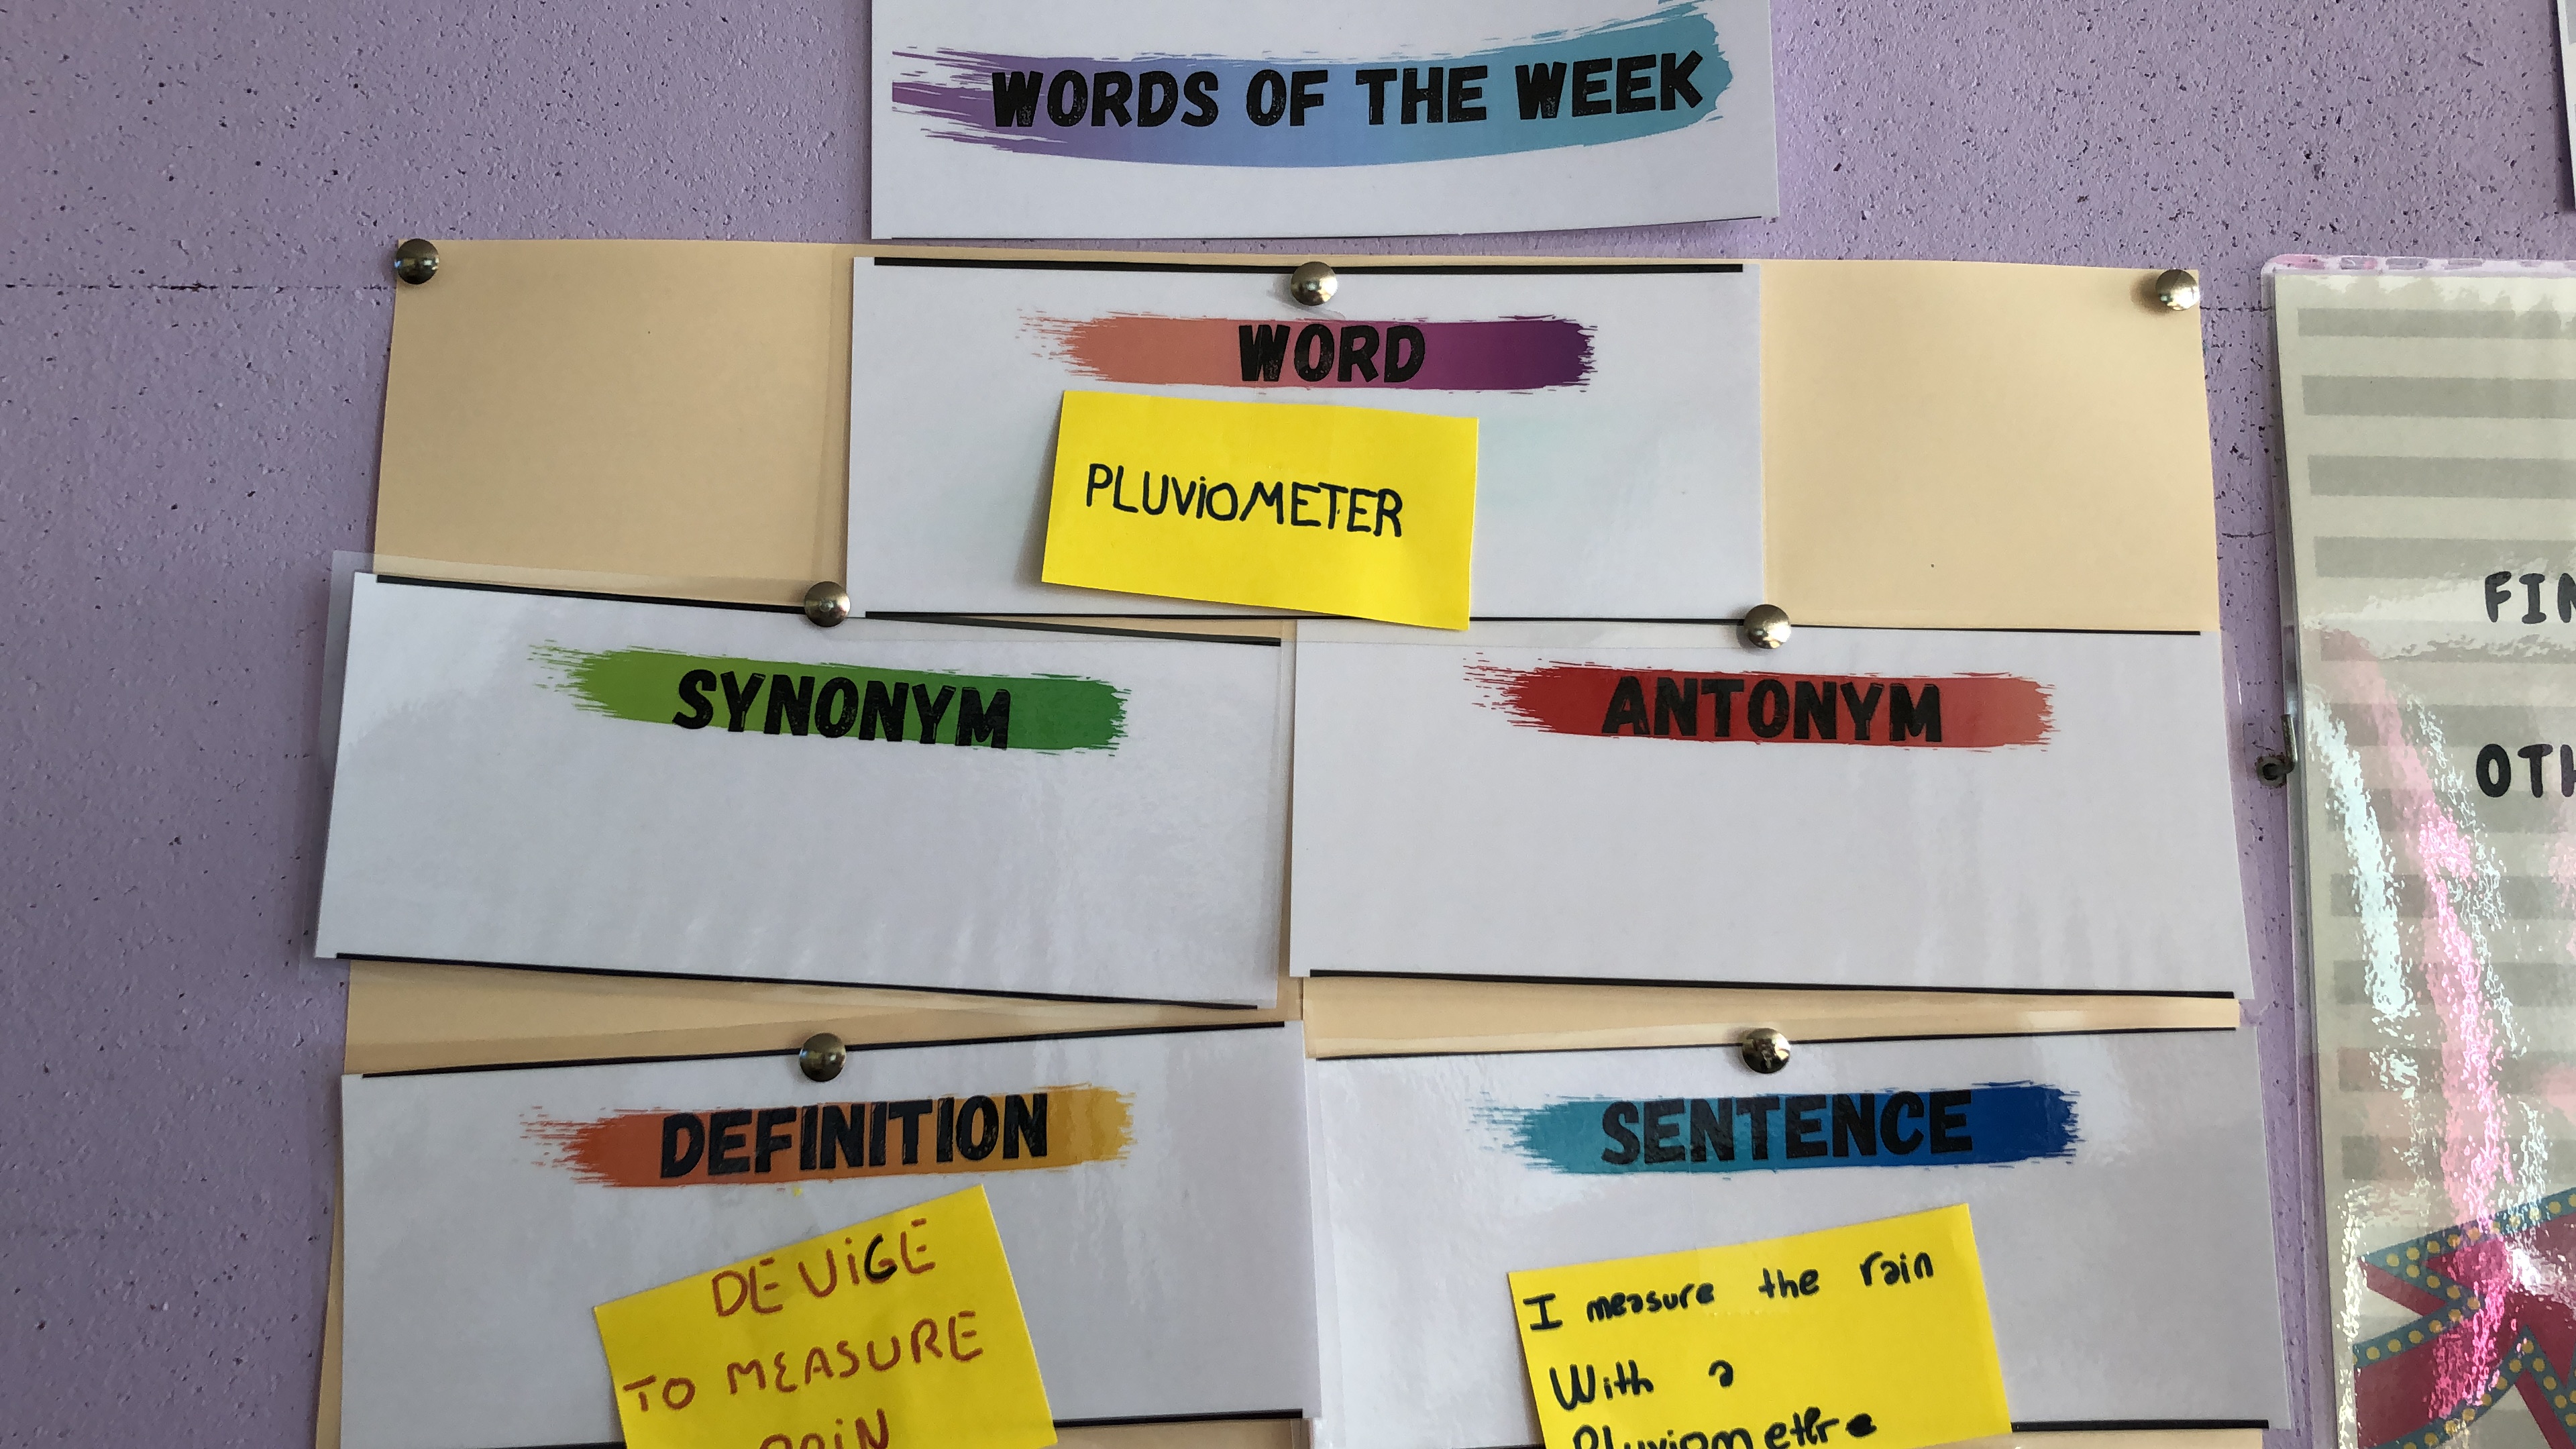 WORDS OF THE WEEK
WORD
PLUViOMETER
SYNONYM
ANTONYM
DEFINITION
DEViGE
TO MEASURE
RAiN
SENTENCE
I measure the rain
With a
Pluviometer
FIN
OTH